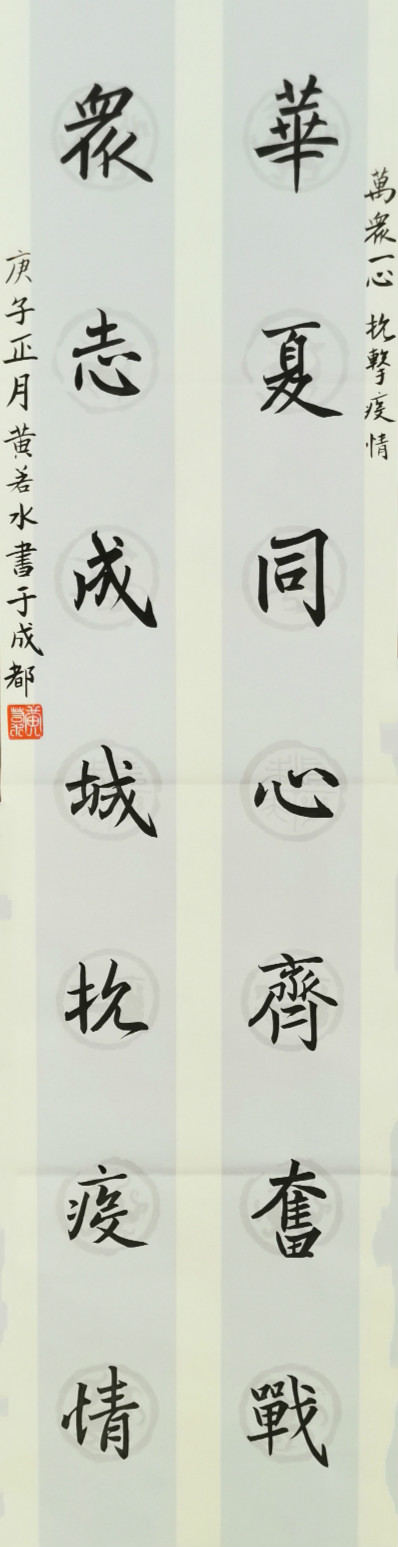 萬衆一心 抗擊疫情
華夏同心齊奮戰
衆志成城抗疫情
庚子正月黄若水書于成都